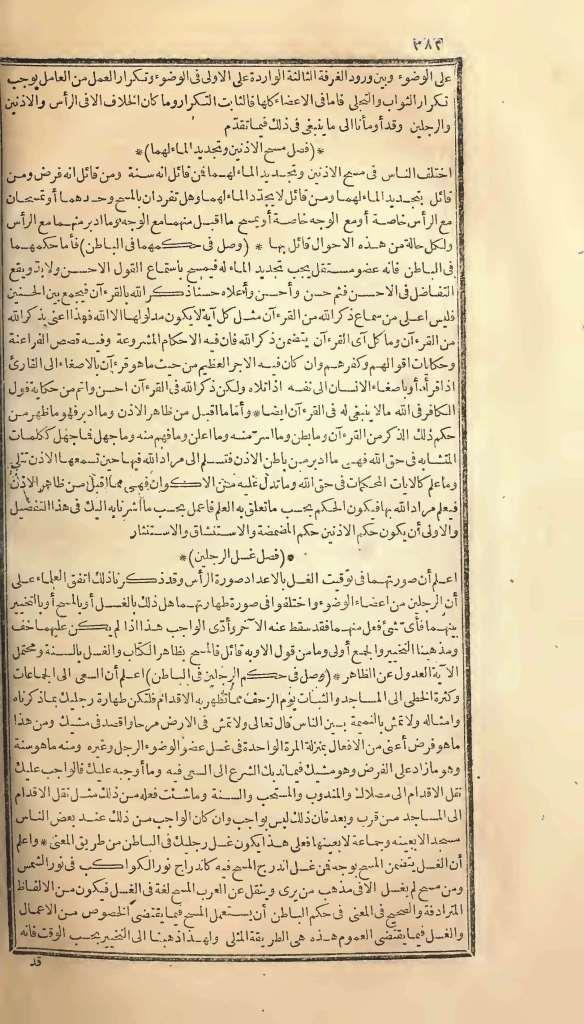 ٣٨٣
على الوضوء وبين ورود الغرفة الثالثة الواردة على الاولى فى الوضوء وتكرار العمل من العامل يوجب
تكرار الثواب والتجلى فاما فى الاعضاء كلها فالثابت التكرار وما كان الخلاف الا فى الرأس والاذنين
والرجلين وقد أومأنا الى ما ينبغى فى ذلك فيما تقدم
*(فصل مسح الاذنين وتجديد الماء لهما)*
اختلف الناس فى مسح الاذنين وتجديد الماء لهما فمن قائل انه سنة ومن قائل انه فرض ومن
قائل بتجديد الماء لهما ومن قائل لا يجدد الماء لهما وهل تفردان بالمسح وحدهما أو تمسحان
مع الرأس خاصة أو مع الوجه خاصة أو يمسح ما اقبل منهما مع الوجه وما ادبر منهما مع الرأس
ولكل حالة من هذه الاحوال قائل بها * (وصل فى حكمهما فى الباطن) فأما حكمهما
فى الباطن فانه عضو مستقل يجب تجديد الماء له فيمسح باستماع القول الاحسن ولابد ويقع
التفاضل فى الاحسن فثم حسن وأحسن وأعلاه حسنا ذكر الله بالقرءآن فيجمع بين الحسنين
فليس اعلى من سماع ذكر الله من القرءآن مثل كل آية لا يكون مدلولها الا الله فهذا اعنى بذكر الله
من القرءآن وما كل آى القرءآن يتضمن ذكر الله فان فيه الاحكام المشروعة وفيه قصص الفراعنة
وحكايات اقوالهم وكفرهم وان كان فيه الاجر العظيم من حيث ما هو قرءآن بالاصغاء الى القارئ
اذا قرأه. أو باصغاء الانسان الى نفسه اذا تلاه ولكن ذكر الله فى القرءآن احسن واتم من حكاية قول
الكافر فى الله ما لا ينبغى له فى القرءآن ايضا * وأما ما اقبل من ظاهر الاذن وما ادبر فهو ما ظهر من
حكم ذلك الذكر من القرءآن وما بطن وما اسر منه وما اعلن وما فهم منه وما جهل فما جهل ككلمات
المتشابه فى حق الله فهى مما ادبر من باطن الاذن فتسلم الى مراد الله فيها حين تسمعها الاذن تتلى
وما علم كالايات المحكمات فى حق الله وما تدل عليه من الاكوان فهى مما اقبل من ظاهر الاذن
فيعلم مراد الله بها فيكون الحكم بحسب ما تعلق به العلم فاعمل بحسب ما أشرنا به اليك فى هذا التفصيل
والاولى أن يكون حكم الاذنين حكم المضمضة والاستنشاق والاستنثار
*(فصل غسل الرجلين)*
اعلم أن صورتهما فى توقيت الغسل بالاعداد صورة الرأس وقد ذكرنا ذلك اتفق العلماء على
أن الرجلين من اعضاء الوضوء واختلفوا فى صورة طهارتهما هل ذلك بالغسل أو بالمسح أو بالتخيير
بينهما فأى شئ فعل منهما فقد سقط عنه الآخر وأدى الواجب هذا اذا لم يكن عليهما خف
ومذهبنا التخيير والجمع أولى وما من قول الا وبه قائل فالمسح بظاهر الكتاب والغسل بالسنة ومحتمل
الآية العدول عن الظاهر * (وصل فى حكم الرجلين فى الباطن) اعلم أن السعى الى الجماعات
وكثرة الخطى الى المساجد والثبات يوم الزحف مما تطهر به الاقدام فلتكن طهارة رجليك بما ذكرناه
وامثاله ولا تمش بالنميمة بين الناس قال تعالى ولا تمش فى الارض مرحا واقصد فى مشيك ومن هذا
ما هو فرض أعنى من الافعال بمنزلة المرة الواحدة فى غسل عضو الوضوء الرجل وغيره ومنه ما هو سنة
وهو ما زاد على الفرض وهو مشيك فيما ندبك الشرع الى السعى فيه وما أوجبه عليك فالواجب عليك
نقل الاقدام الى مصلاك والمندوب والمستحب والسنة وما شئت فعله من ذلك مثل نقل الاقدام
الى المساجد من قرب وبعد فان ذلك ليس بواجب وان كان الواجب من ذلك عند بعض الناس
مسجدا لا بعينه وجماعة لا بعينها فعلى هذا يكون غسل رجليك فى الباطن من طريق المعنى * واعلم
أن الغسل يتضمن المسح بوجه فمن غسل اندرج المسح فيه كاندراج نور الكواكب فى نور الشمس
ومن مسح لم يغسل الا فى مذهب من يرى وينقل عن العرب المسح لغة فى الغسل فيكون من الالفاظ
المترادفة والصحيح فى المعنى فى حكم الباطن أن يستعمل المسح فيما يقتضى الخصوص من الاعمال
والغسل فيما يقتضى العموم هذه هى الطريقة المثلى ولهذا ذهبنا الى التخيير بحسب الوقت فانه
قد